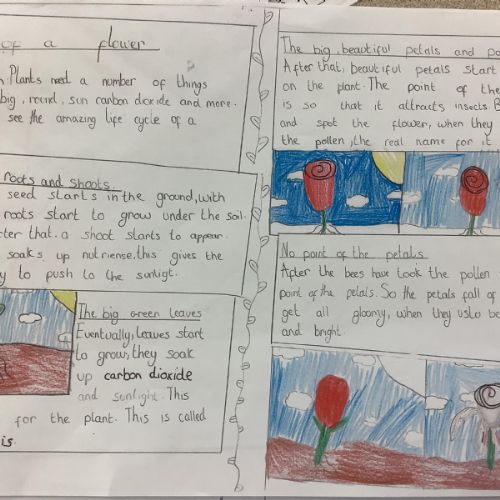 of a flower
Plants need a number of things
big, round, sun carbon dioxide and more.
see the amazing life cycle of a
roots and shoots.
seed starts in the ground, with
roots start to grow under the soil.
that. a shoot starts to appear.
soaks up nutriense, this gives the
to push to the sunligt.
The big green leaves
Eventually, leaves start
to grow, they soak
up carbon dioxide
and sunlight. This
for the plant. This is called
The big, beautiful petals and
After that, beautiful petals start
on the plant. The point of the
is so that it attracts insects.
and spot the flower, when they
the pollen, the real name for it
No point of the petals
After the bees have took the pollen
point of the petals. So the petals fall of
get all gloomy, when they usto be
and bright.